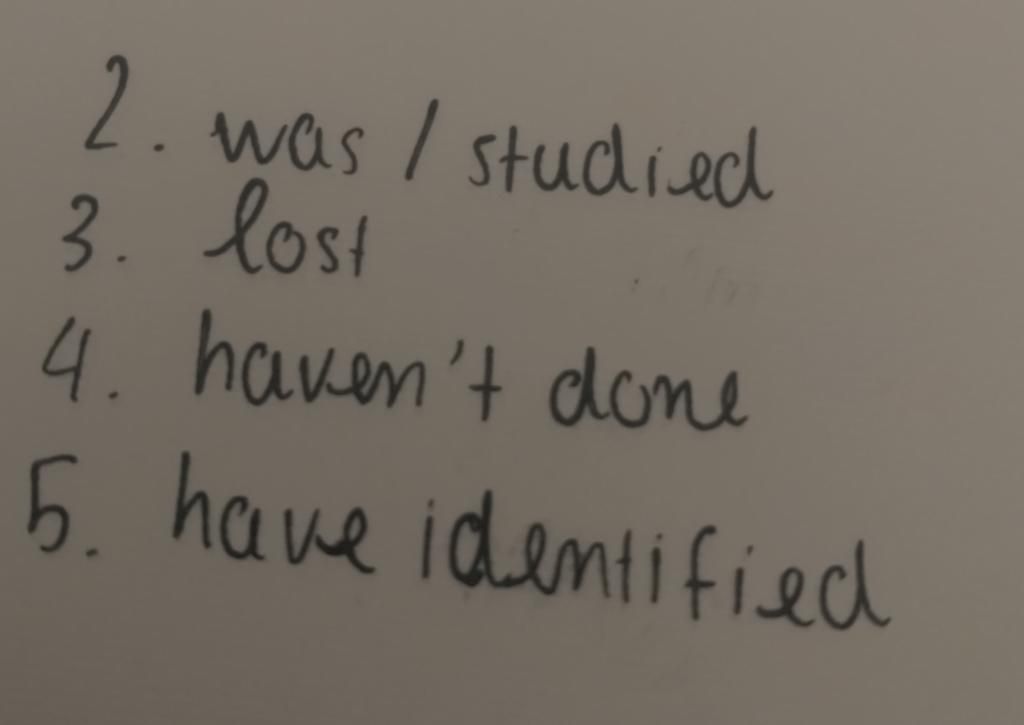 2. was / studied
3. lost
4. haven't done
5. have identified